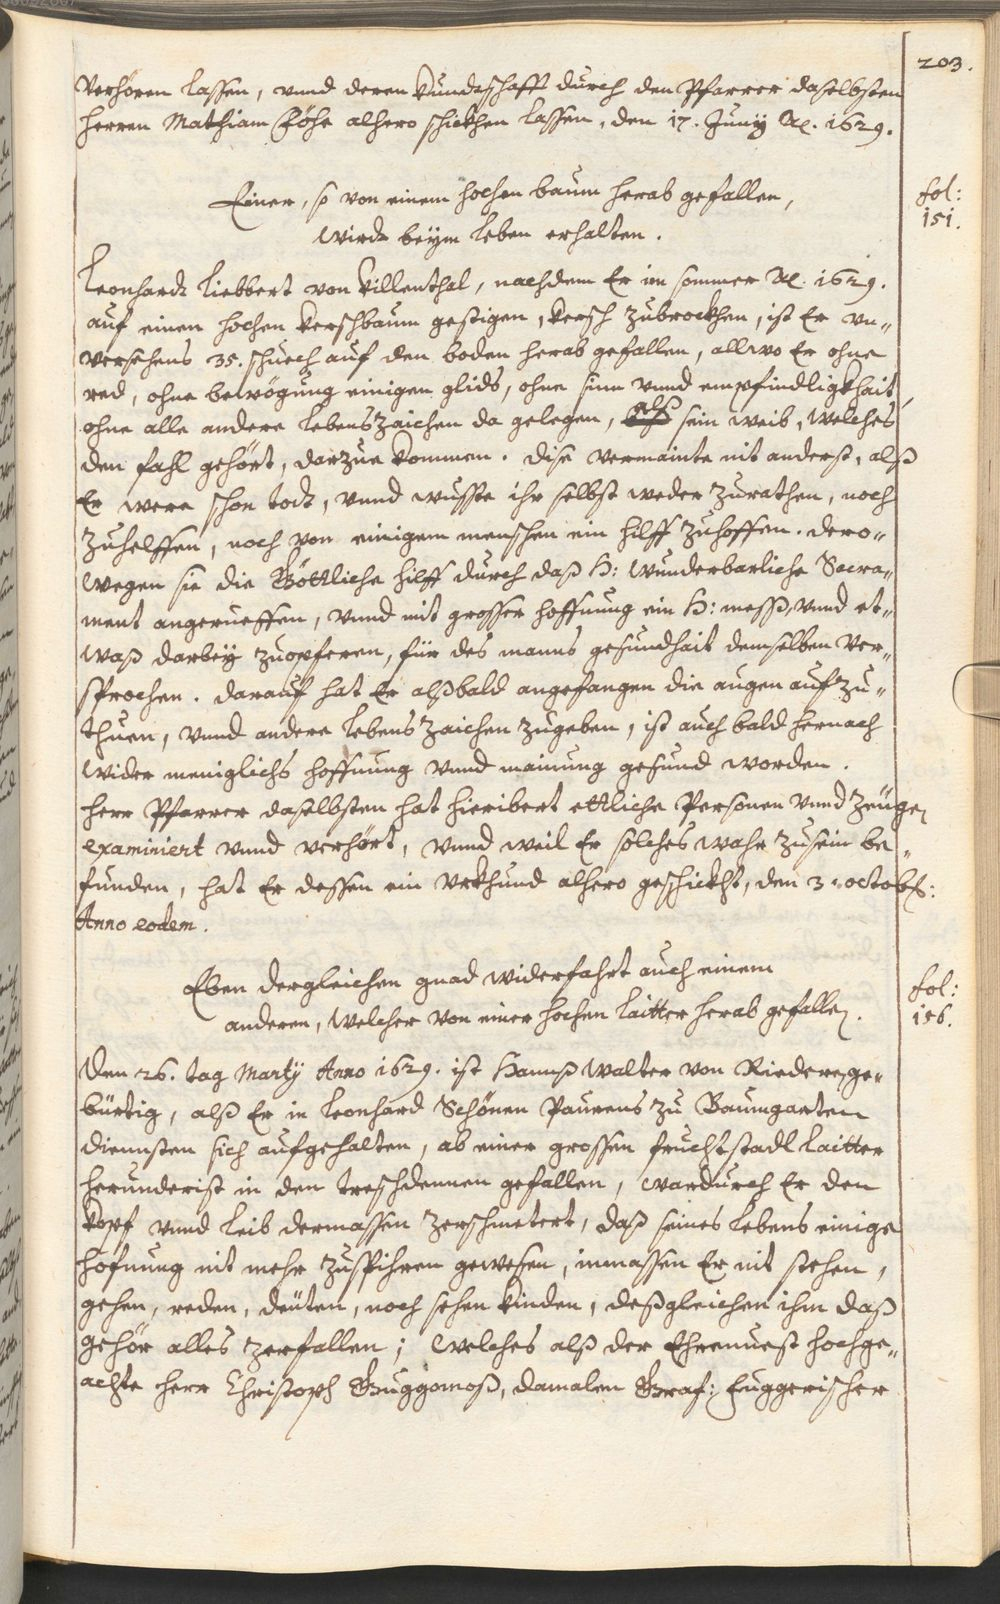 203.
verhören lassen, vnnd deren Kundtschafft durch den Pfarrer daselbsten
Herren Mathiam Höhe alhero schickhen lassen, den 17. Junÿ Aº. 1629.
Einer, so von einem hochen baum herab gefallen,
wirdt beÿm leben erhalten.
fol:
151.
Leonhardt Liebbert von Killenthal, nachdem Er im sommer Aº. 1629.
auf einen hochen Kerschbaum gestigen, Kersch zubrockhen, ist Er vn-
versehens 35. schuech auf den boden herab gefallen, allwo Er ohne
red, ohne bewögung einigen glids, ohne sinn vnnd empfindligkhait,
ohne alle andere lebenszaichen da gelegen, alß sein weib, welches
den fahl gehört, darzue kommen. dise vermainte nit anderst, alß
Er were schon todt, vnnd wusste ihr selbst weder zurathen, noch
zuhelffen, noch von einigem menschen ein hilff zuhoffen. dero-
wegen sie die Göttliche hilff durch daß H: wunderbarliche Sacra-
ment angerueffen, vnnd mit grosser hoffnung ein H: meß, vnnd et-
waß darbeÿ zuopferen, für des manns gesundhait demselben ver-
sprochen. darauf hat Er alßbald angefangen die augen aufzu-
thuen, vnnd andere lebens zaichen zugeben, ist auch bald hernach
wider meniglichs hoffnung vnnd mainung gesund worden.
herr Pfarrer daselbsten hat hieribert ettliche Personen vnnd zeugen
examiniert vnnd verhört, vnnd weil Er solches wahr zusein be-
funden, hat Er dessen ein Vrkhund alhero geschickht, den 3. octobr:
Anno eodem.
Eben dergleichen gnad widerfahrt auch einem
anderen, welcher von einer hochen laitter herab gefallen.
fol:
156.
Den 26. tag Martÿ Anno 1629. ist Hannß Walter von Riederen ge-
bürtig, alß Er in Leonhard Schönen Paurens zu Baumgarten
diennsten sich aufgehalten, ab einer grossen fruchtstadl laitter
herunderist in den treschdennen gefallen, wardurch Er den
kopf vnnd leib dermassen zerschmetert, daß seines lebens einige
hofnung nit mehr zuspihren gewesen, inmassen Er nit stehen,
gehen, reden, deuten, noch sehen kinden, deßgleichen ihm daß
gehör alles zerfallen; welches alß der Ehrnuest hochge-
achte herr Christoph Guggomoß, damalen Graf: Fuggerischer